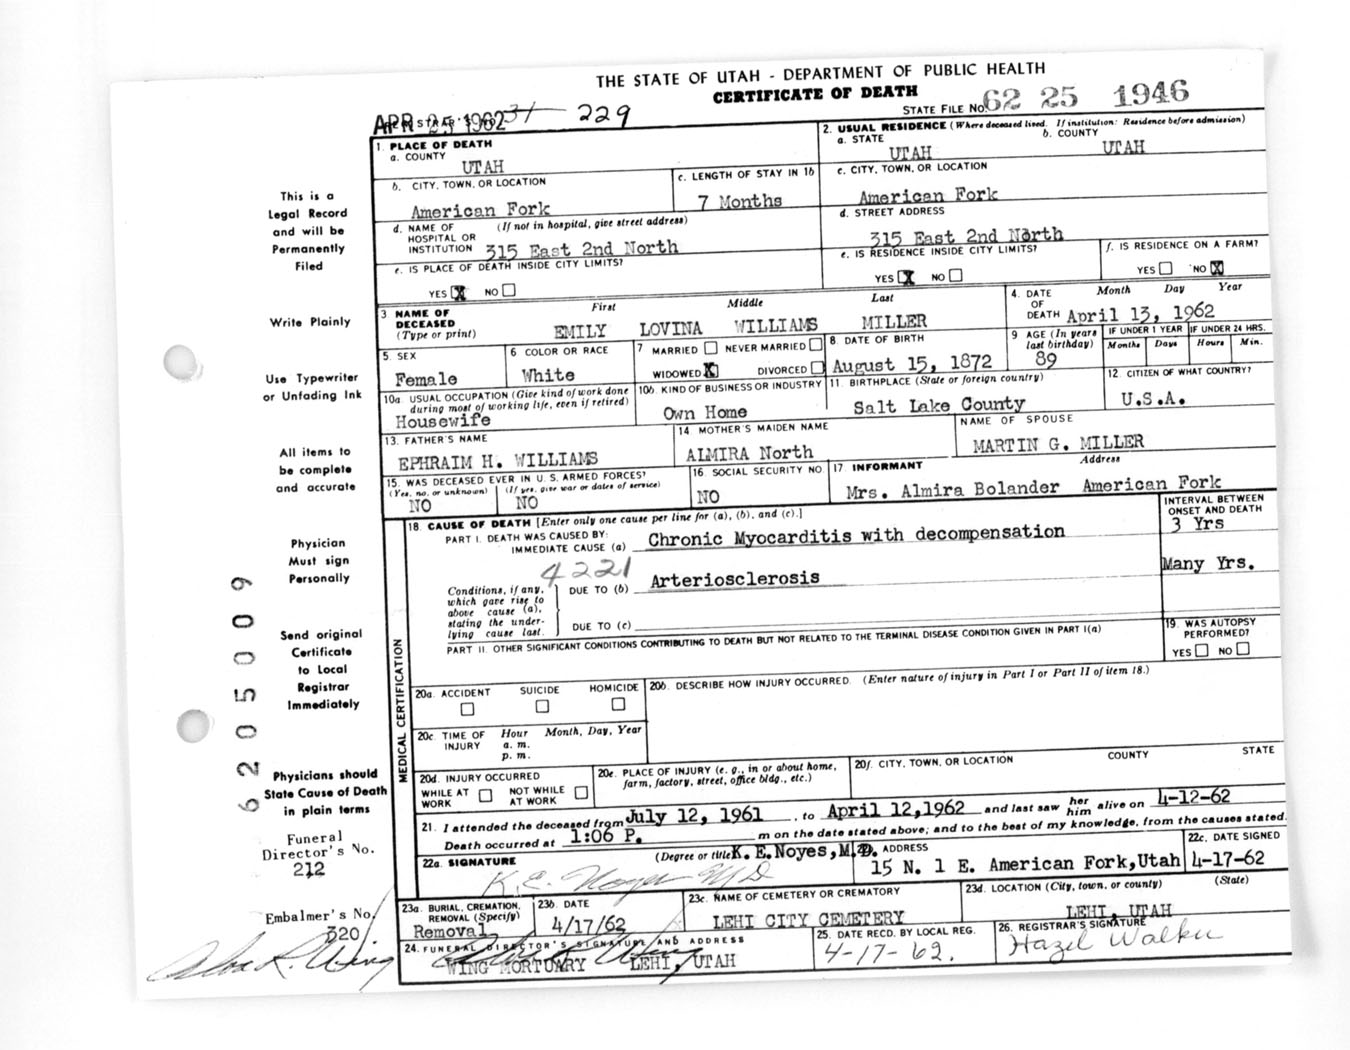 THE STATE OF UTAH - DEPARTMENT OF PUBLIC HEALTH
CERTIFICATE OF DEATH
STATE FILE NO. 62 25 1946
APR 25 1962 31 229
1. PLACE OF DEATH
a. COUNTY
UTAH
2. USUAL RESIDENCE (Where deceased lived. If institution: Residence before admission)
a. STATE b. COUNTY
UTAH UTAH
b. CITY, TOWN, OR LOCATION
American Fork
c. LENGTH OF STAY IN 1b
7 Months
c. CITY, TOWN, OR LOCATION
American Fork
d. NAME OF HOSPITAL OR INSTITUTION (If not in hospital, give street address)
315 East 2nd North
d. STREET ADDRESS
315 East 2nd North
e. IS PLACE OF DEATH INSIDE CITY LIMITS?
YES X NO
e. IS RESIDENCE INSIDE CITY LIMITS?
YES X NO
f. IS RESIDENCE ON A FARM?
YES NO X
3 NAME OF DECEASED (Type or print)
First Middle Last
EMILY LOVINA WILLIAMS MILLER
4. DATE OF DEATH
Month Day Year
April 13, 1962
5. SEX
Female
6 COLOR OR RACE
White
7 MARRIED NEVER MARRIED
WIDOWED X DIVORCED
8. DATE OF BIRTH
August 15, 1872
9 AGE (In years last birthday)
89
IF UNDER 1 YEAR
Months Days
IF UNDER 24 HRS.
Hours Min.
10a. USUAL OCCUPATION (Give kind of work done during most of working life, even if retired)
Housewife
10b. KIND OF BUSINESS OR INDUSTRY
Own Home
11. BIRTHPLACE (State or foreign country)
Salt Lake County
12. CITIZEN OF WHAT COUNTRY?
U.S.A.
13. FATHER'S NAME
EPHRAIM H. WILLIAMS
14 MOTHER'S MAIDEN NAME
ALMIRA North
NAME OF SPOUSE
MARTIN G. MILLER
15. WAS DECEASED EVER IN U. S. ARMED FORCES?
(Yes, no, or unknown) (If yes, give war or dates of service)
NO NO
16 SOCIAL SECURITY NO.
NO
17. INFORMANT Address
Mrs. Almira Bolander American Fork
18. CAUSE OF DEATH [Enter only one cause per line for (a), (b), and (c).]
INTERVAL BETWEEN ONSET AND DEATH
PART I. DEATH WAS CAUSED BY:
IMMEDIATE CAUSE (a) Chronic Myocarditis with decompensation 3 Yrs
4221
Conditions, if any, which gave rise to above cause (a), stating the under-lying cause last.
DUE TO (b) Arteriosclerosis Many Yrs.
DUE TO (c)
PART II. OTHER SIGNIFICANT CONDITIONS CONTRIBUTING TO DEATH BUT NOT RELATED TO THE TERMINAL DISEASE CONDITION GIVEN IN PART I(a)
19. WAS AUTOPSY PERFORMED?
YES NO
MEDICAL CERTIFICATION
20a. ACCIDENT SUICIDE HOMICIDE
20b. DESCRIBE HOW INJURY OCCURRED. (Enter nature of injury in Part I or Part II of item 18.)
20c. TIME OF INJURY
Hour Month, Day, Year
a. m.
p. m.
20d. INJURY OCCURRED
WHILE AT WORK NOT WHILE AT WORK
20e. PLACE OF INJURY (e. g., in or about home, farm, factory, street, office bldg., etc.)
20f. CITY, TOWN, OR LOCATION COUNTY STATE
21. I attended the deceased from July 12, 1961, to April 12, 1962 and last saw her him alive on 4-12-62
Death occurred at 1:06 P. m on the date stated above; and to the best of my knowledge, from the causes stated.
22a. SIGNATURE (Degree or title) K. E. Noyes, M.D.
K. E. Noyes MD
22b. ADDRESS
15 N. 1 E. American Fork, Utah
22c. DATE SIGNED
4-17-62
23a. BURIAL, CREMATION, REMOVAL (Specify)
Removal
23b. DATE
4/17/62
23c. NAME OF CEMETERY OR CREMATORY
LEHI CITY CEMETERY
23d. LOCATION (City, town, or county) (State)
LEHI, UTAH
24. FUNERAL DIRECTOR'S SIGNATURE AND ADDRESS
WING MORTUARY LEHI, UTAH
25. DATE RECD. BY LOCAL REG.
4-17-62.
26. REGISTRAR'S SIGNATURE
Hazel Walker
This is a
Legal Record
and will be
Permanently
Filed
Write Plainly
Use Typewriter
or Unfading Ink
All items to
be complete
and accurate
Physician
Must sign
Personally
Send original
Certificate
to Local
Registrar
Immediately
Physicians should
State Cause of Death
in plain terms
Funeral
Director's No.
212
Embalmer's No.
320
62050009